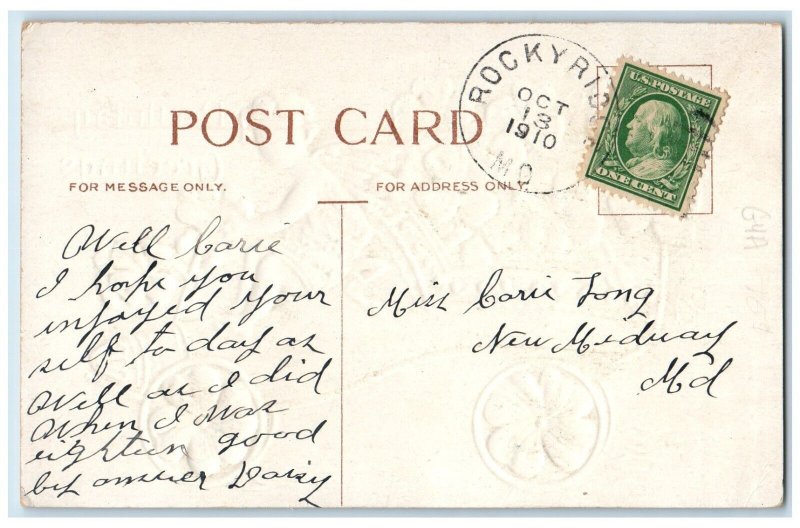 POST CARD
FOR MESSAGE ONLY.
FOR ADDRESS ONLY.
ROCKYRIDGE
OCT
13
1910
MD
U.S. POSTAGE
ONE CENT
Well Carie
I hope you
injoyed your
self to day as
Well as I did
When I was
eighteen good
by answer Daisy
Miss Carie Long
New Midway
Md